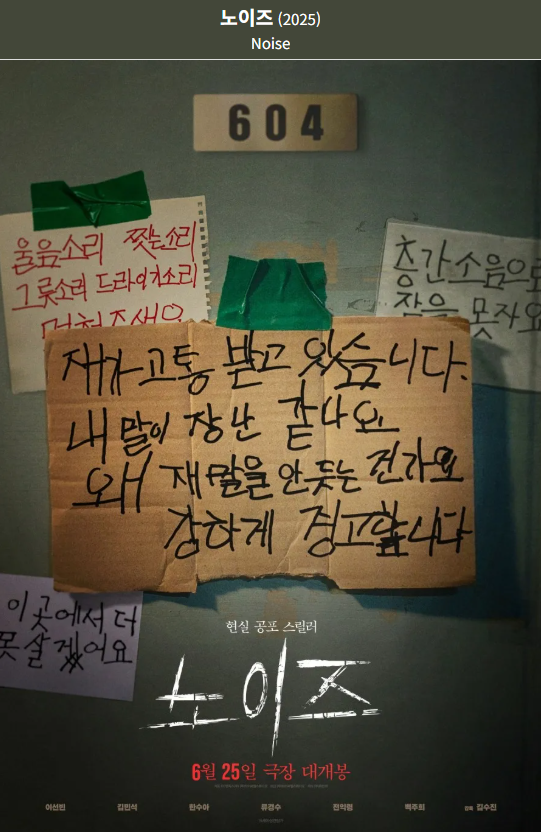 노이즈 (2025)
Noise
604
울음소리 짖는소리
그릇소리 드라이기소리
멈춰주세요
층간소음으로
잠을 못자요
재가 고통 받고 있습니다.
내 말이 장난 같나요
왜 재 말을 안 듣는 건가요
강하게 경고합니다
이곳에서 더
못살겠어요
현실 공포 스릴러
노이즈
6월 25일 극장 대개봉
이선빈 김민석 한수아 류경수 전익령 백주희 감독 김수진